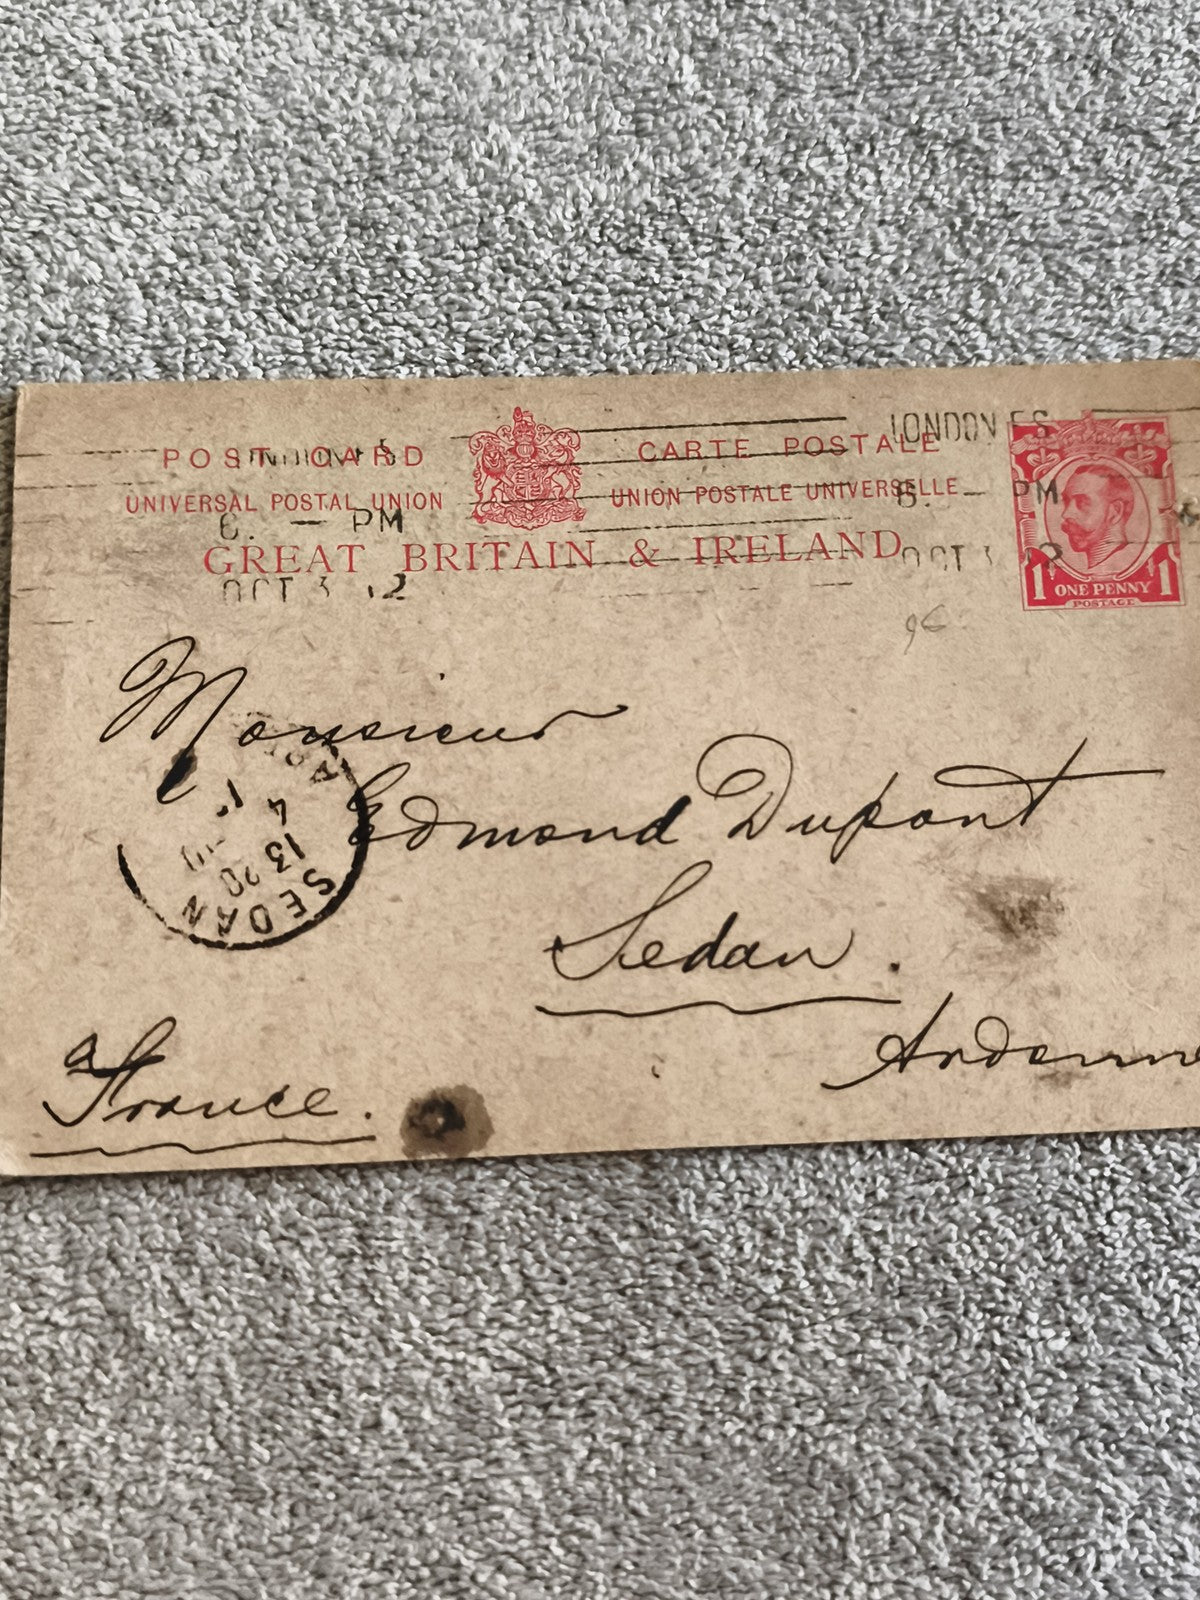 POST CARD
CARTE POSTALE
LONDON F.S
UNIVERSAL POSTAL UNION
UNION POSTALE UNIVERSELLE
6. — PM
6. — PM
GREAT BRITAIN & IRELAND
OCT 3 12
OCT 3
1 ONE PENNY 1
POSTAGE
Monsieur
Edmond Dupont
Sedan.
Ardenne
France.
SEDAN
13 20
4